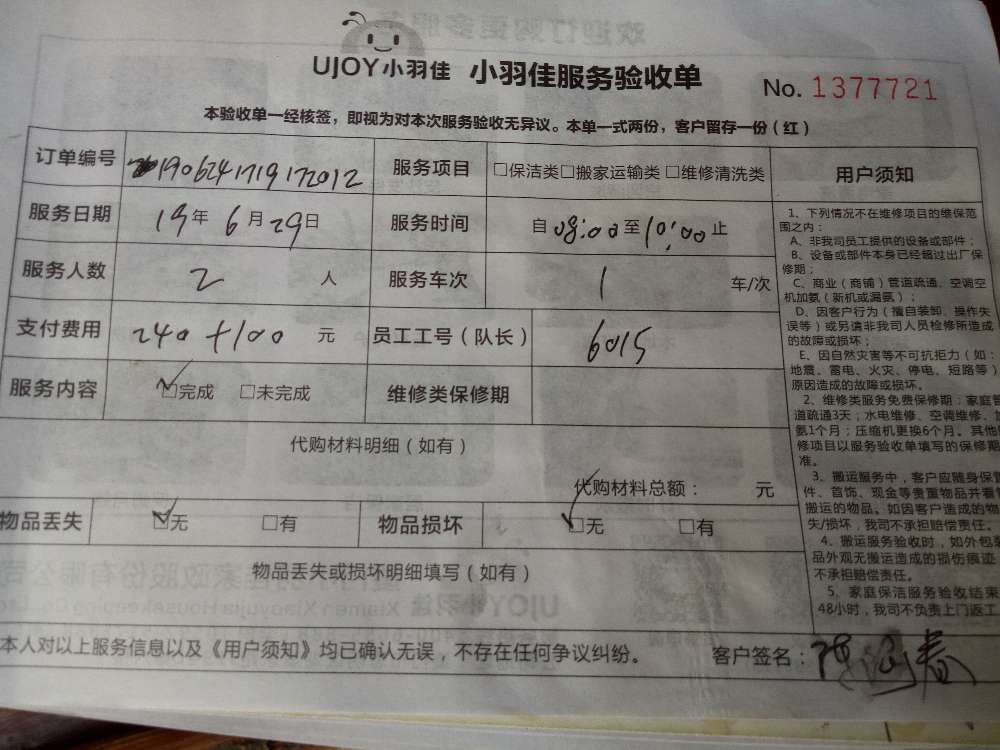 UJOY小羽佳 小羽佳服务验收单 No. 1377721
本验收单一经核签，即视为对本次服务验收无异议。本单一式两份，客户留存一份（红）
订单编号 1906241719172012 服务项目 □保洁类□搬家运输类 □维修清洗类
服务日期 19年 6月29日 服务时间 自08:00至10:00止
服务人数 2 人 服务车次 1 车/次
支付费用 240+100 元 员工工号（队长） 6015
服务内容 ☑完成 □未完成 维修类保修期
代购材料明细（如有）
代购材料总额： 元
物品丢失 ☑无 □有 物品损坏 ☑无 □有
物品丢失或损坏明细填写（如有）
本人对以上服务信息以及《用户须知》均已确认无误，不存在任何争议纠纷。 客户签名：
用户须知
1、下列情况不在维修项目的维保范
围之内：
A、非我司员工提供的设备或部件；
B、设备或部件本身已经超过出厂保
修期；
C、商业（商铺）管道疏通、空调空
机加氨（新机或漏氨）；
D、因客户行为（擅自装卸、操作失
误等）或另请非我司人员检修所造成
的故障或损坏；
E、因自然灾害等不可抗拒力（如：
地震、雷电、火灾、停电、短路等）
原因造成的故障或损坏。
2、维修类服务免费保修期：家庭管
道疏通3天；水电维修、空调维修、
氨1个月；压缩机更换6个月。其他
修项目以服务验收单填写的保修期
准。
3、搬运服务中，客户应随身保管
件、首饰、现金等贵重物品并看管
搬运的物品。如因客户造成的物
失/损坏，我司不承担赔偿责任。
4、搬运服务验收时，如外包装
品外观无搬运造成的损伤痕迹
不承担赔偿责任。
5、家庭保洁服务验收结束
48小时，我司不负责上门返工